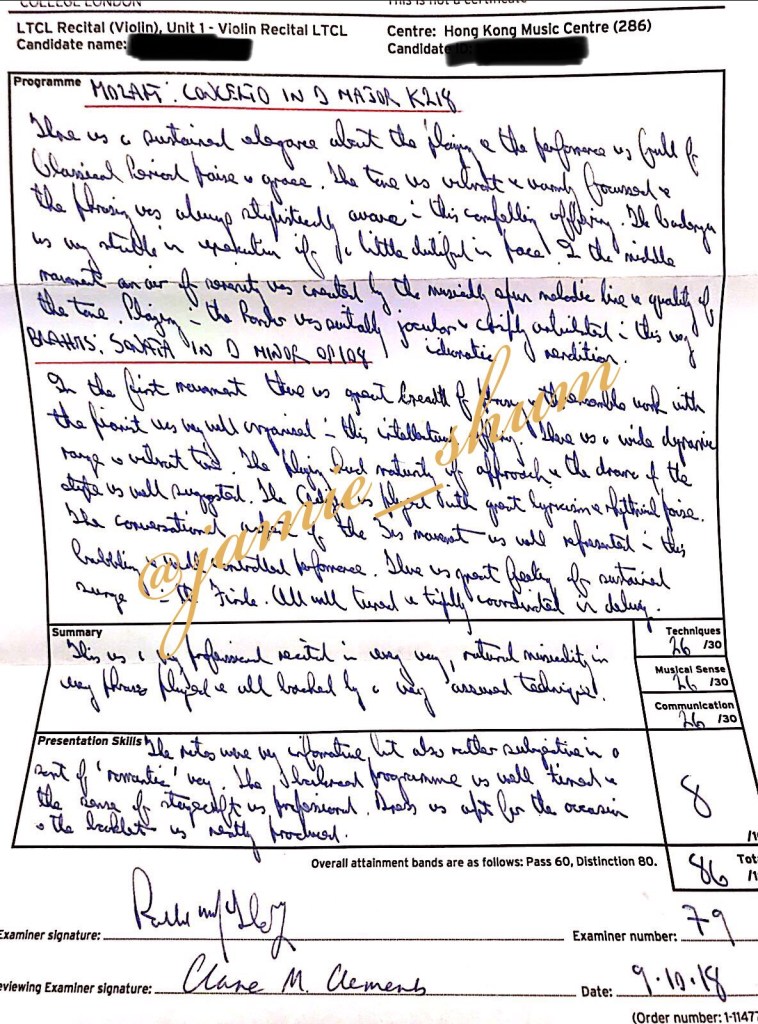 COLLEGE LONDON
This is not a certificate
LTCL Recital (Violin), Unit 1 - Violin Recital LTCL
Centre: Hong Kong Music Centre (286)
Candidate name:
Candidate ID:
Programme
MOZART: CONCERTO IN D MAJOR K218
There was a sustained elegance about the playing & the performance was full of
Classical Period poise & grace. The tone was vibrant & warmly focussed &
the phrasing was always stylistically aware in this compelling offering. The cadenza
was very stable in execution if a little dutiful in pace. In the middle
movement an air of serenity was created by the musically spun melodic line & quality of
the tone. Playing in the Rondo was suitably jocular & crisply articulated in this very
idiomatic rendition.
BRAHMS: SONATA IN D MINOR OP108
In the first movement there was great breadth of & the ensemble work with
the pianist was very well organised in this intellectual offering. There was a wide dynamic
range & vibrant tone. The playing had maturity of approach & the drama of the
style was well suggested. The was played with great lyricism & rhythmical poise.
The conversational aspect of the 3rd movement was well represented in this
bubbling & well controlled performance. There was great feeling of sustained
surge in the Finale. All well tuned & tightly coordinated in delivery.
@jamie_shum
Summary
This was a very professional recital in every way, natural musicality in
every phrase played & all backed by a very assured technique.
Techniques
26 /30
Musical Sense
26 /30
Communication
26 /30
Presentation Skills
The notes were very informative but also rather subjective in a
sort of 'romantic' way. The balanced programme was well timed &
the sense of stagecraft was professional. Dress was apt for the occasion
& the booklet was neatly produced.
8
Overall attainment bands are as follows: Pass 60, Distinction 80.
86
Examiner signature:
Examiner number: 79
Reviewing Examiner signature: Clare M. Clements
Date: 9.10.18
(Order number: 1-11477